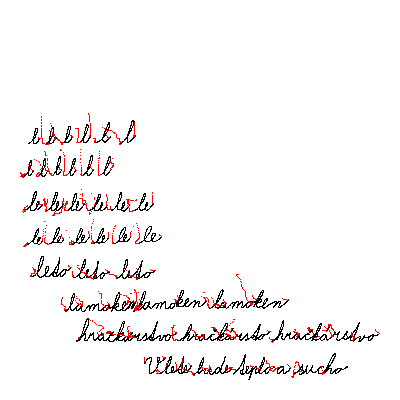 l l l l l l
l l l l l l
le le le le le le
le le le le le le
leto leto leto
lamoken lamoken lamoken
hračkárstvo hračkársto hračkárstvo
V lete bude teplo a sucho